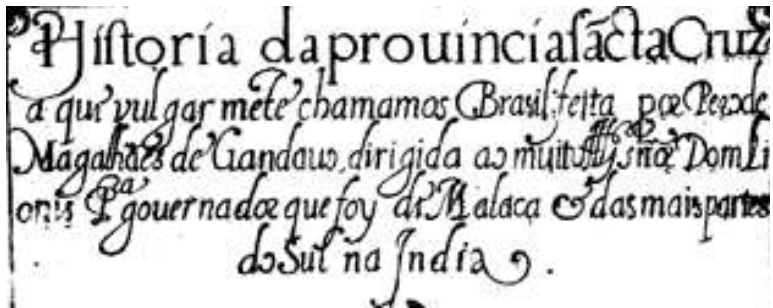 Historia da prouincia sãcta Cruz
a que vulgar mẽte chamamos Brasil: feita por Pero de
Magalhães de Gandauo, dirigida ao muito Illsͬᵉ sñor Dom Li
onis Pª gouernador que foy de Malaca & das mais partes
do Sul na India.